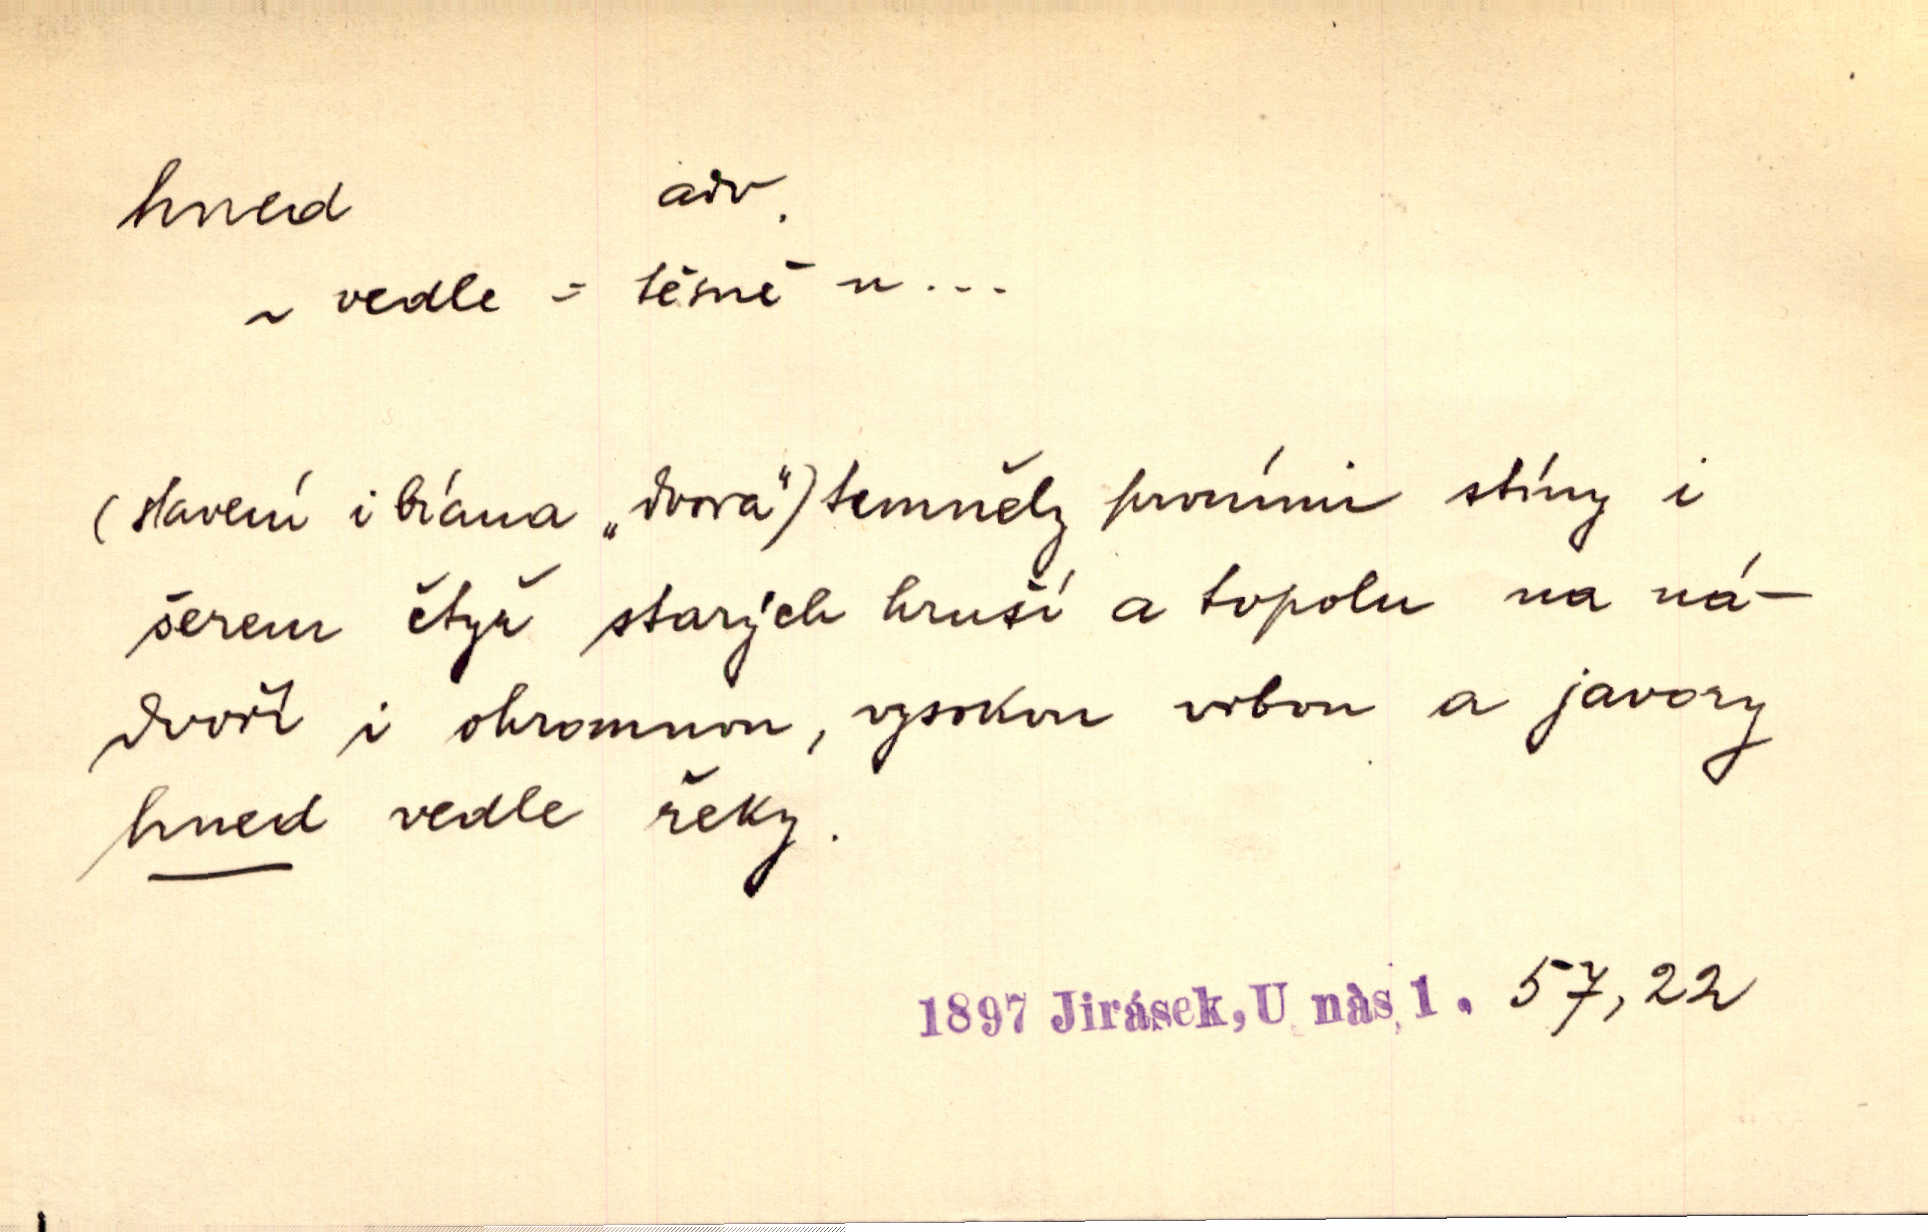 hned adv.
~ vedle = těsně u...
(stavení i brána „dvora“) temněly prvními stíny i
šerem čtyř starých hruší a topolu na ná-
dvoří i ohromnou, vysokou vrbou a javory
hned vedle řeky.
1897 Jirásek, U nàs 1. 57,22